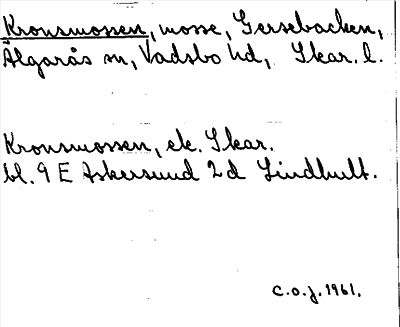 Kronsmossen, mosse, Gersebacken,
Älgarås sn, Vadsbo hd, Skar. l.
Kronsmossen, ek. Skar.
bl. 9 E Askersund 2d Lindhult.
C.O.J. 1961.